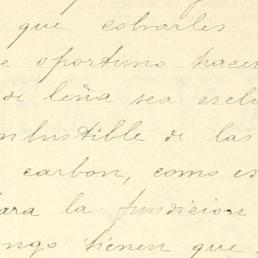 que cobrarles
e oportuno hacer
de leña sea exclu
mbustible de las
carbon, como es
para la fundicion
ngo tienen que